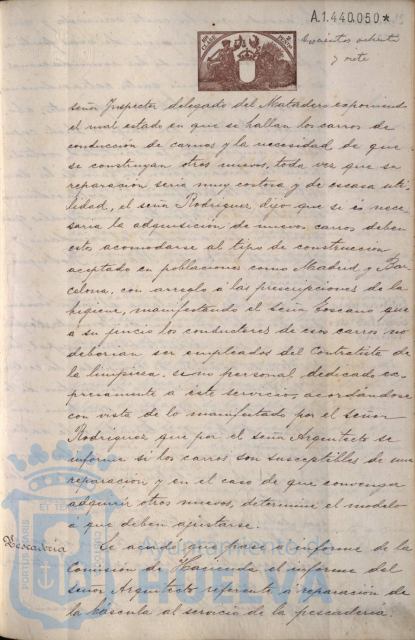 A.1.440.050*
Doscientos ochenta
y siete
señor Inspector delegado del Matadero exponiendo
el mal estado en que se hallan los carros de
conducción de carnes y la necesidad de que
se construyan otros nuevos, toda vez que su
reparación seria muy costosa y de escasa uti-
lidad, el señor Rodriguez, dijo que si es nece-
saria la adquisición de nuevos carros deben
estos acomodarse al tipo de construcción
aceptado en poblaciones como Madrid y Bar-
celona, con arreglo á las prescripciones de la
higiene, manifestando el Señor Toscano que
a su juicio los conductores de esos carros no
deberian ser empleados del Contratista de
la limpieza si no personal dedicado ex-
presamente á este servicio; acordandose
con vista de lo manifestado por el señor
Rodriguez que por el señor Arquitecto se
informe si los carros son susceptibles de una
reparación y en el caso de que convenga
adquirir otros nuevos, determine el modelo
á que deben ajustarse.
Pescaderia
Se acordó que pase a informe de la
Comisión de Hacienda el informe del
señor Arquitecto referente á reparación de
la báscula al servicio de la pescaderia
PORTUS MARIS ET TERRAE CUSTODIA
Ayuntamiento de
HUELVA